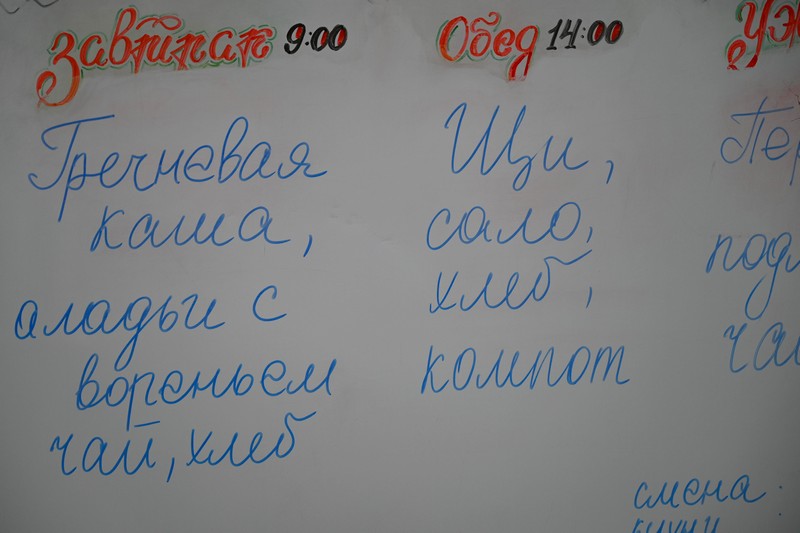 Завтрак 9:00
Гречневая
каша,
аладьи с
вореньем
чай, хлеб
Обед 14:00
Щи,
сало,
хлеб,
компот
Уж
Пер
под
чай
смена
кухни